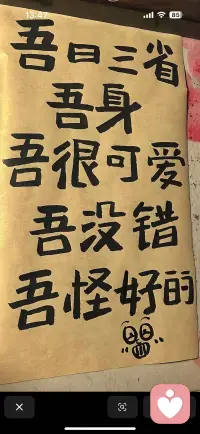 13:47
85
吾日三省
吾身
吾很可爱
吾没错
吾怪好的